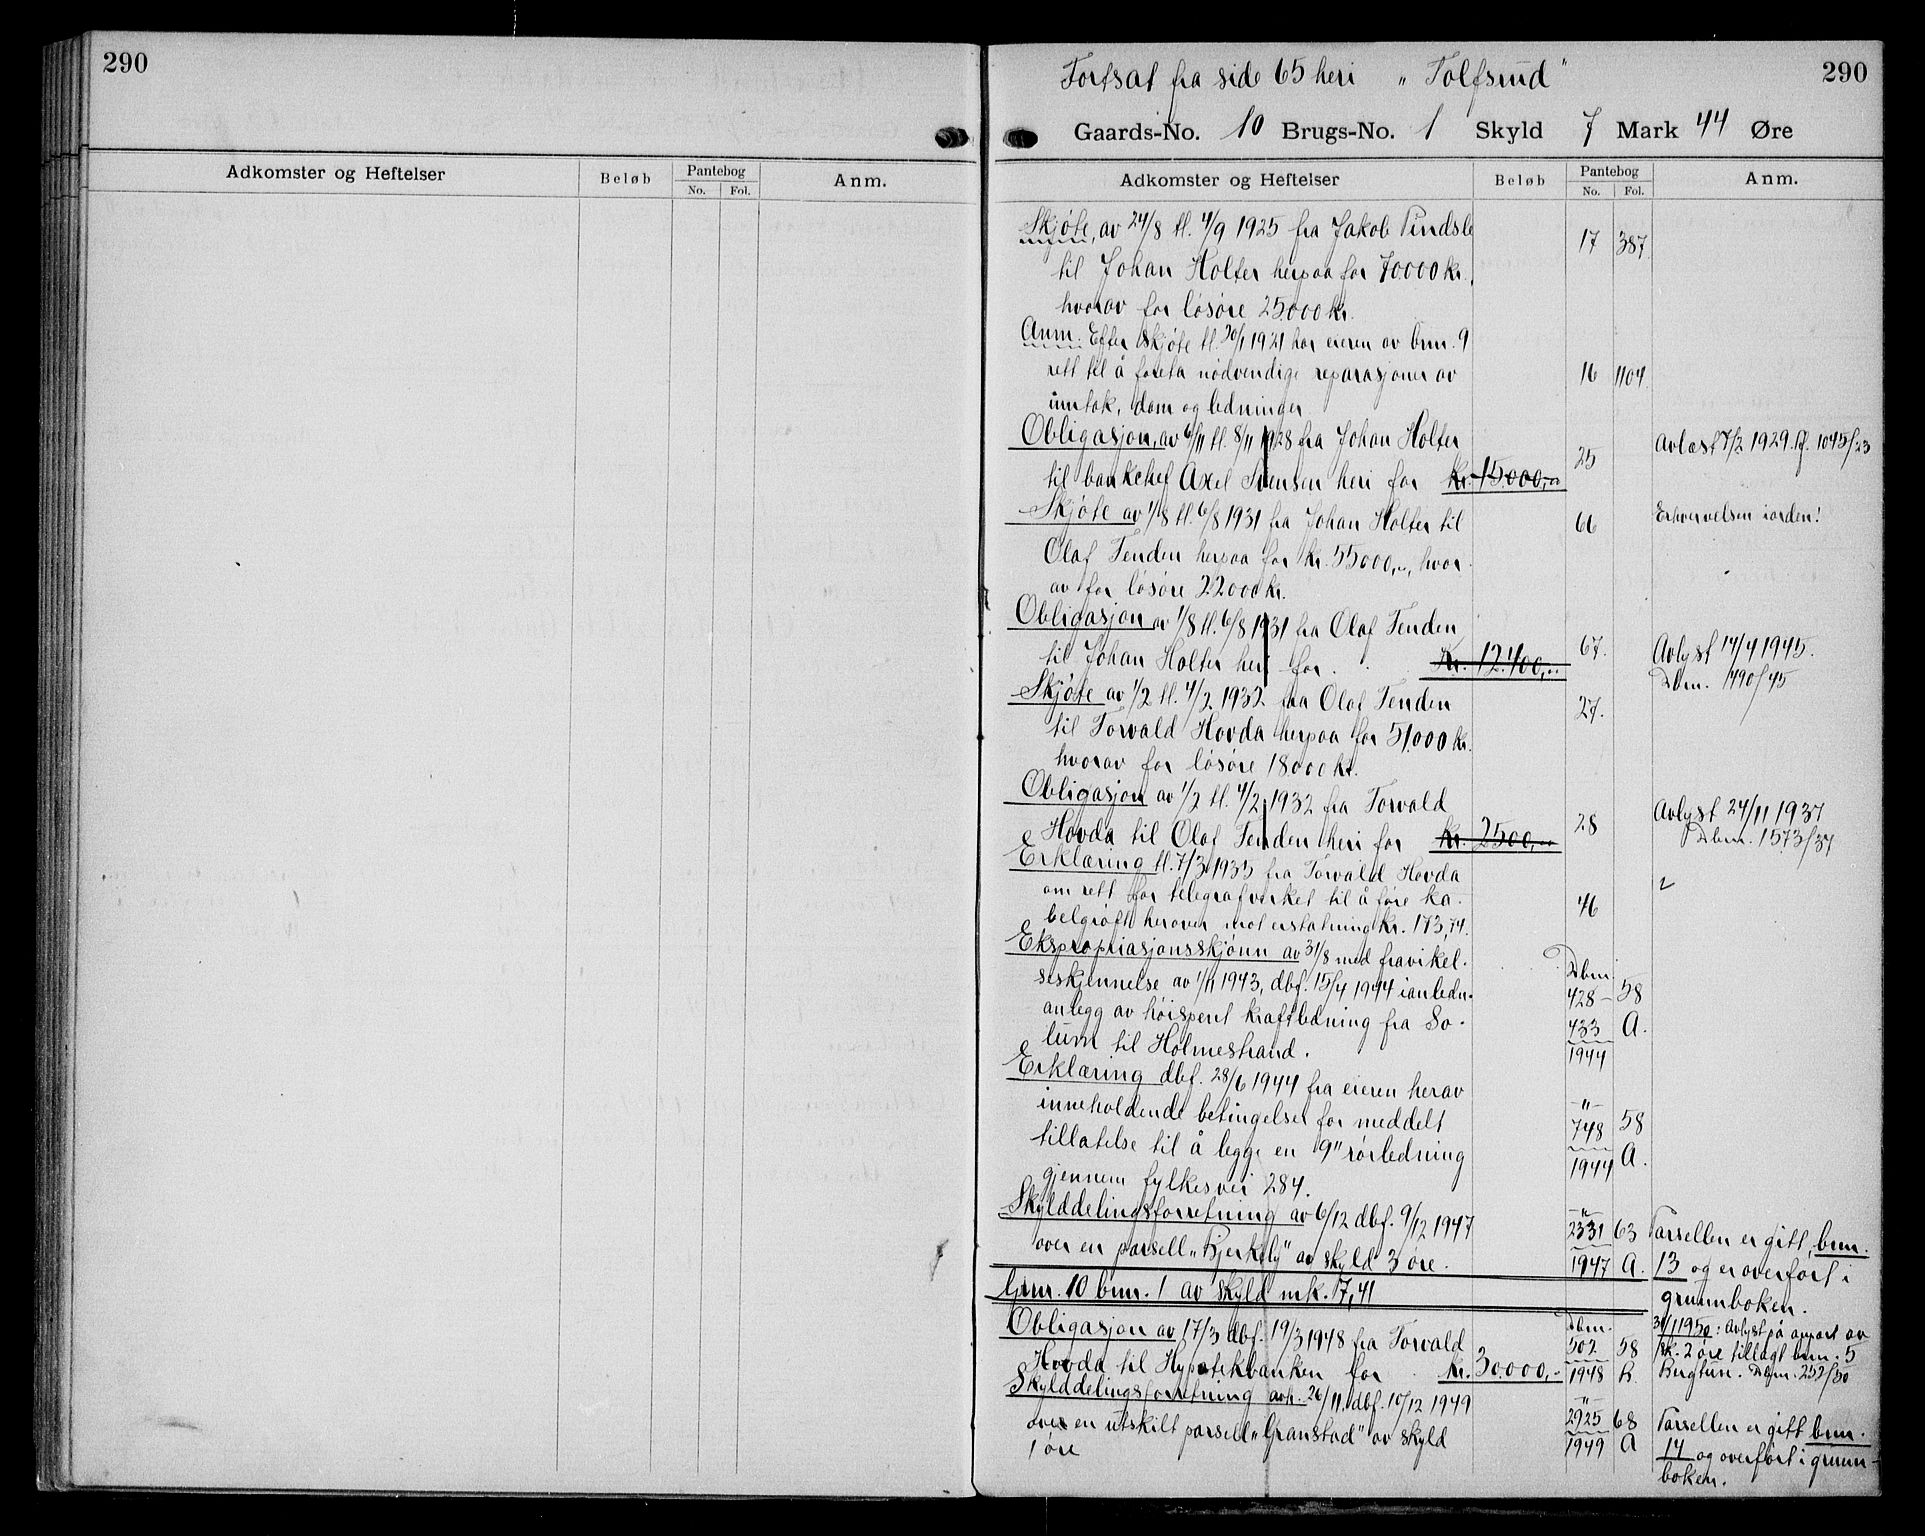 290
Adkomster og Heftelser Beløb Pantebog No. Fol. Anm.
Fortsat fra side 65 heri „Tolfsrud” 290
Gaards-No. 10 Brugs-No. 1 Skyld 7 Mark 44 Øre
Adkomster og Heftelser Beløb Pantebog No. Fol. Anm.
Skjøte, av 24/8 tl. 4/9 1925 fra Jakob Pindsle 17 387
til Johan Holter herpaa for 70000 kr.,
hvorav for løsøre 25000 kr.
Anm. Efter skjøte tl. 20/1 1921 har eieren av bnr. 9
rett til å foreta nødvendige reparasjoner av 16 1104
inntak, dam og ledninger
Obligasjon, av 6/11 tl. 8/11 1928 fra Johan Holter Avlæst 7/2 1929. 1045/23
til bankchef Axel Svensen heri for Kr. 15.000,00 25
Skjøte av 1/8 tl. 6/8 1931 fra Johan Holter til 66 Erhvervelsen iorden!
Olaf Tenden herpaa for kr. 55000,-, hvor-
av for løsøre 22000 kr.
Obligasjon av 1/8 tl. 6/8 1931 fra Olaf Tenden
til Johan Holter heri for Kr. 12.400,00 67. Avlyst 14/4 1945.
Dbnr. 490/45
Skjøte av 1/2 tl. 4/2 1932 fra Olaf Tenden 27.
til Torvald Hovda herpaa for 51.000 kr.
hvorav for løsøre 18000 kr.
Obligasjon av 1/2 tl. 4/2 1932 fra Torvald Avlyst 24/11 1937
Hovda til Olaf Tenden heri for Kr. 2500,00 28 Dbnr. 1573/37
Erklæring tl. 7/3 1933 fra Torvald Hovda
om rett for telegrafverket til å føre ka- 46
belgrøft herover mot erstatning kr. 173,74.
Ekspropriasjonsskjønn av 31/8 med fravikel- Dbnr.
seskjennelse av 1/11 1943, dbf. 15/4 1944 i anledn. 428- 58
anlegg av høispent kraftledning fra So- 433 A.
lum til Holmestrand. 1944
Erklæring dbf. 28/6 1944 fra eieren herav
inneholdende betingelser for meddelt -"- 748 58
tillatelse til å legge en 9" rørledning 1944 A.
gjennem fylkesvei 284.
Skylddelingsforretning av 6/12 dbf. 9/12 1947 -"- 2331 63 Parsellen er gitt bnr.
over en parsell „Bjerkely” av skyld 3 øre. 1947 A. 13 og er overført i
Gnr. 10 bnr. 1 av skyld mk. 7,41 grunnboken.
Obligasjon av 17/3 dbf. 19/3 1948 fra Torvald Dbnr. 502 58 31/1 1950: Avlyst på appart av
Hovda til Hypotekbanken for kr. 30.000,- 1948 B. sk. 2 øre tillagt bnr. 5
Bergtun. Dbnr. 252/50
Skylddelingsforretning avh. 26/11, dbf. 10/12 1949 -"-
over en utskilt parsell „Granstad” av skyld 2925 68 Parsellen er gitt bnr.
1 øre 1949 A 14 og overført i grunn-
boken.